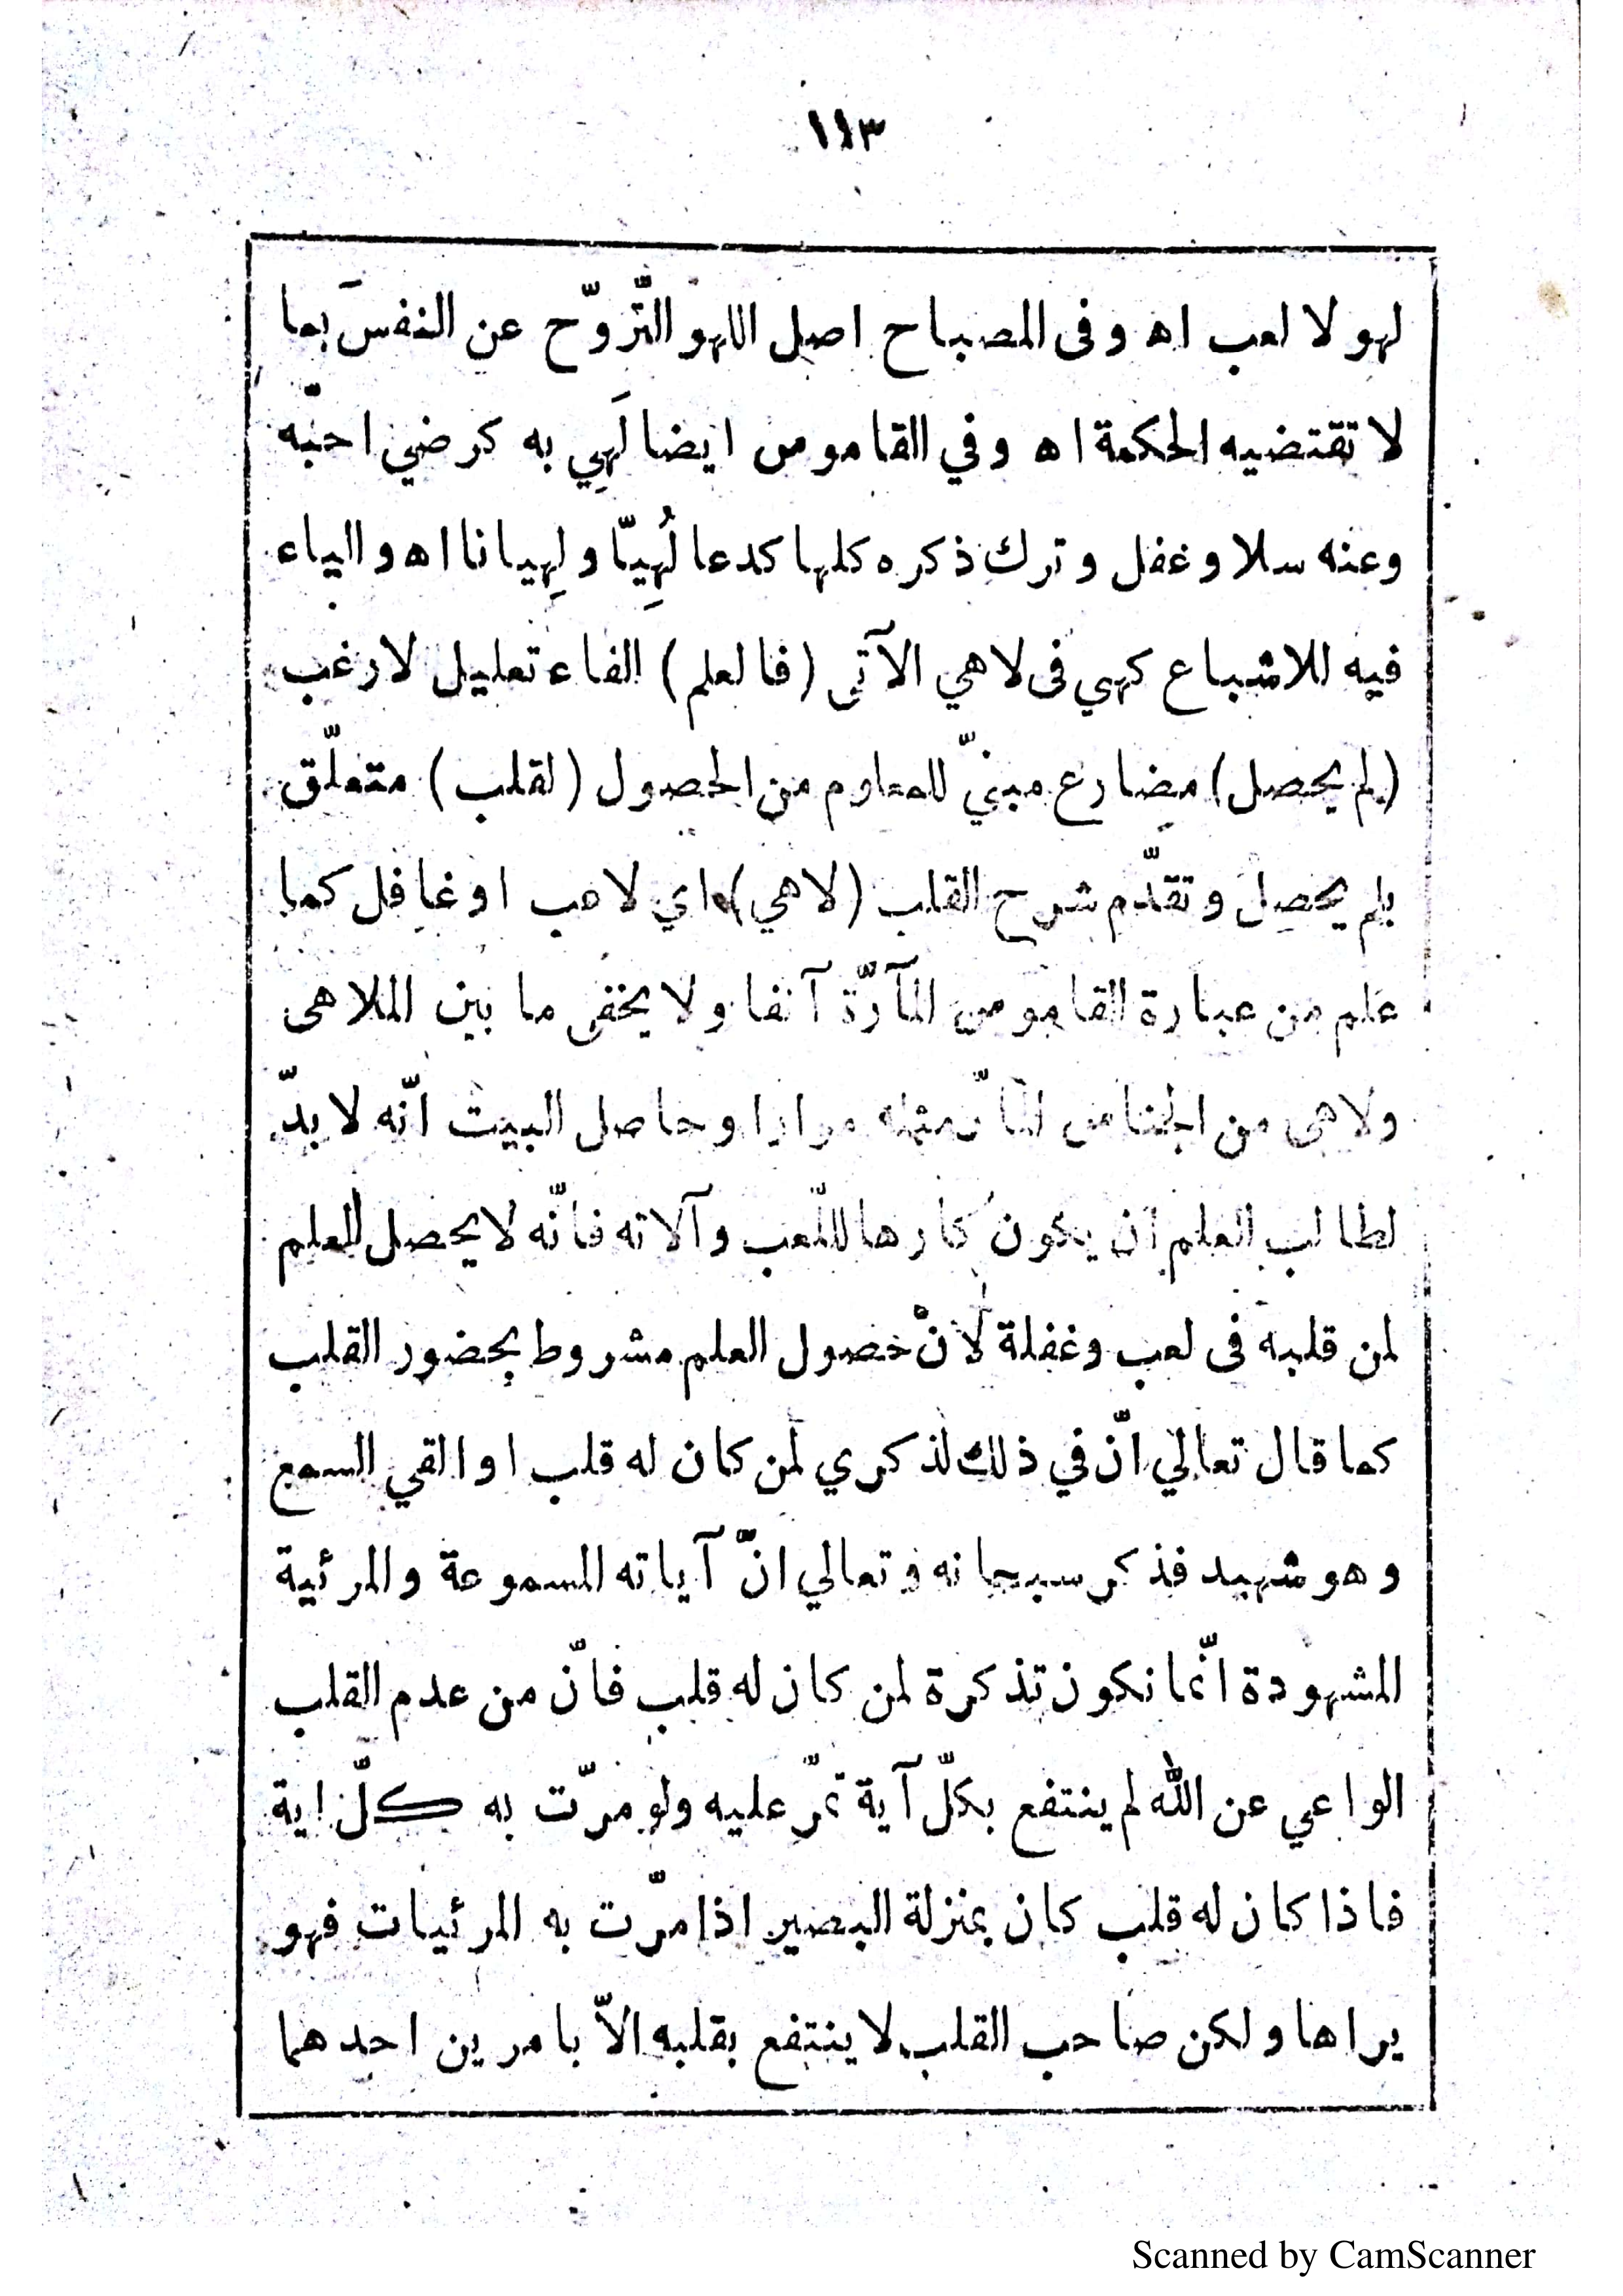 ١١٣
لهو لا لعب اه وفى المصباح اصل اللهو التّروّح عن النفس بما
لا تقتضيه الحكمة اه وفي القاموس ايضا لَهِي به كرضي احبّه
وعنه سلا وغفل وترك ذكره كلها كدعا لُهِيّا ولِهيانا اه والياء
فيه للاشباع كهي فى لاهي الآتى (فالعلم) الفاء تعليل لارغب
(لم يحصل) مضارع مبنيّ للمعلوم من الحصول (لقلب) متعلّق
بلم يحصل وتقدّم شرح القلب (لاهي) اي لاعب او غافل كما
علم من عبارة القاموس المآرّة آنفا ولا يخفى ما بين الملاهى
ولاهى من الجناس مثله مرارا وحاصل البيت انّه لا بدّ
لطالب العلم ان يكون كارها للّعب وآلاته فانّه لا يحصل العلم
لمن قلبه فى لعب وغفلة لانّ حصول العلم مشروط بحضور القلب
كما قال تعالي انّ في ذلك لذكري لمن كان له قلب او القي السمع
وهو شهيد فذكر سبحانه وتعالي انّ آياته المسموعة والمرئية
المشهودة انّما تكون تذكرة لمن كان له قلب فانّ من عدم القلب
الواعي عن الله لم ينتفع بكلّ آية تمرّ عليه ولو مرّت به كلّ اية
فاذا كان له قلب كان بمنزلة البصير اذا مرّت به المرئيات فهو
يراها ولكن صاحب القلب لا ينتفع بقلبه الاّ بامرين احدهما
Scanned by CamScanner